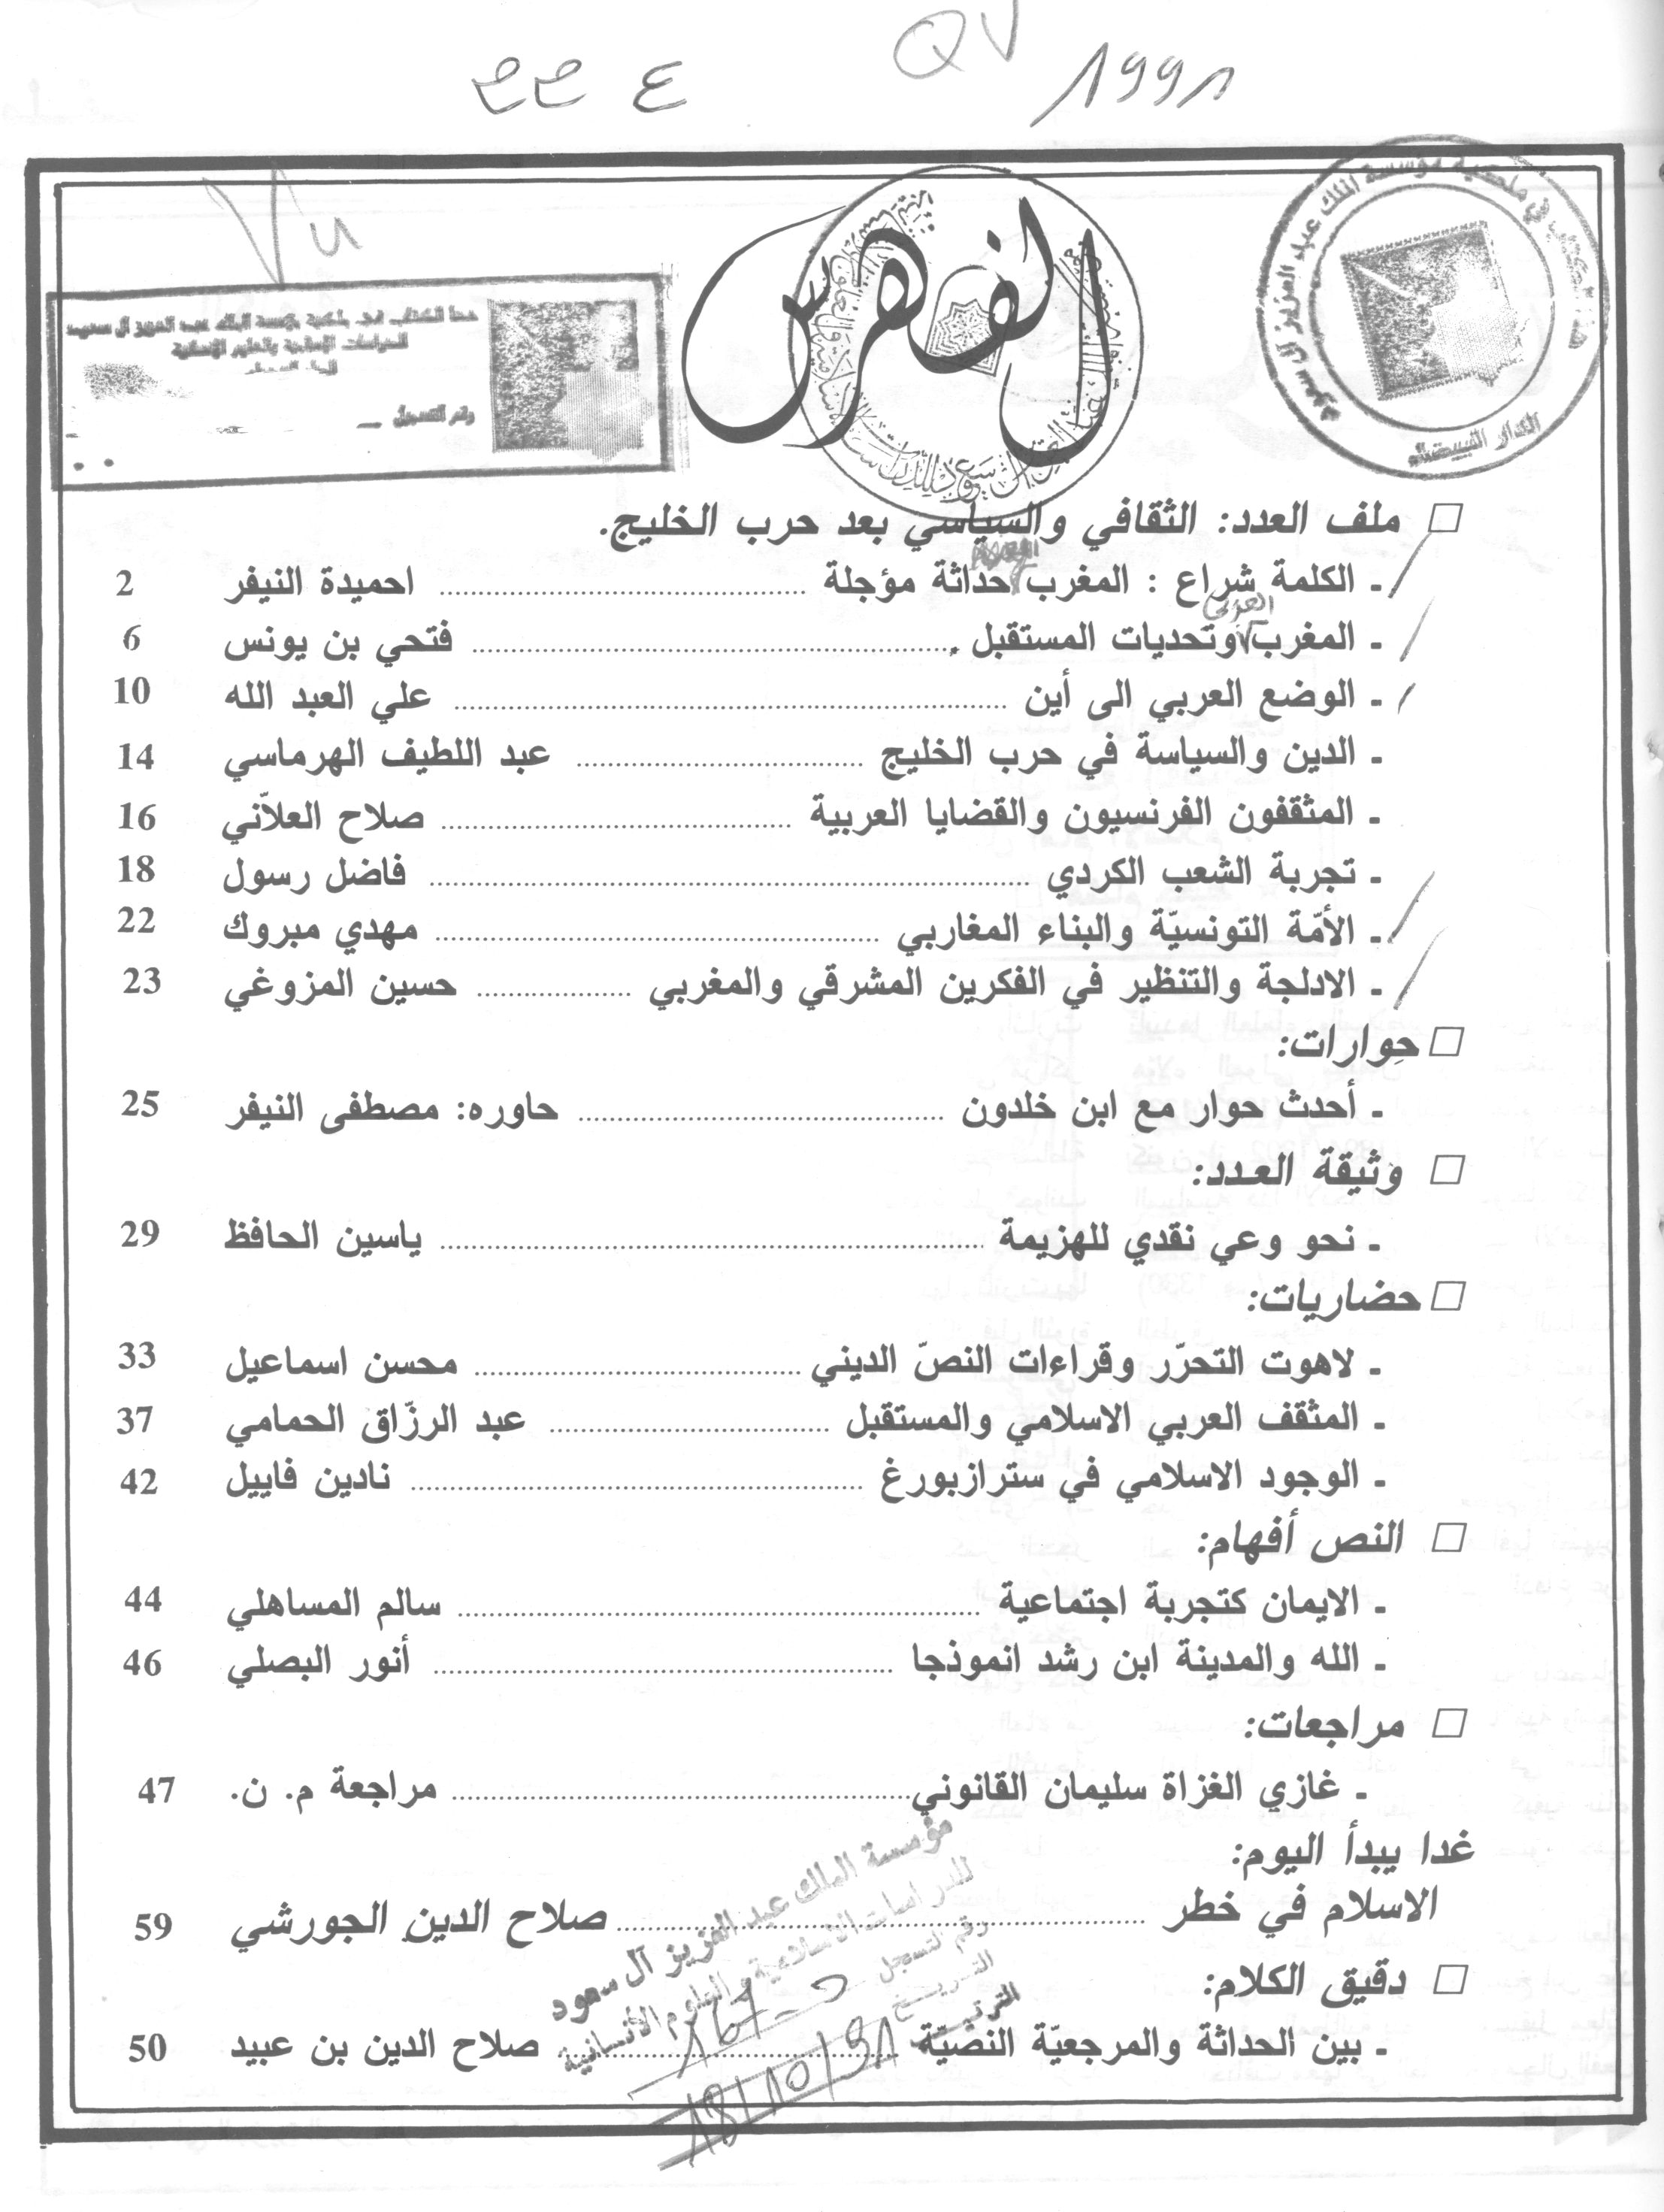 1991
ع 22
الفهرس
هذا الكتاب في ملكية مؤسسة الملك عبد العزيز آل سعود
الدار البيضاء
رقم التسجيل
□ ملف العدد: الثقافي والسياسي بعد حرب الخليج.
ـ الكلمة شراع : المغرب حداثة مؤجلة ........ احميدة النيفر 2
العربي
ـ المغرب وتحديات المستقبل ........ فتحي بن يونس 6
ـ الوضع العربي الى أين ........ علي العبد الله 10
ـ الدين والسياسة في حرب الخليج ........ عبد اللطيف الهرماسي 14
ـ المثقفون الفرنسيون والقضايا العربية ........ صلاح العلاّني 16
ـ تجربة الشعب الكردي ........ فاضل رسول 18
ـ الأمّة التونسيّة والبناء المغاربي ........ مهدي مبروك 22
ـ الادلجة والتنظير في الفكرين المشرقي والمغربي ........ حسين المزوغي 23
□ حِوارات:
ـ أحدث حوار مع ابن خلدون ........ حاوره: مصطفى النيفر 25
□ وثيقة العدد:
ـ نحو وعي نقدي للهزيمة ........ ياسين الحافظ 29
□ حضاريات:
ـ لاهوت التحرّر وقراءات النصّ الديني ........ محسن اسماعيل 33
ـ المثقف العربي الاسلامي والمستقبل ........ عبد الرزّاق الحمامي 37
ـ الوجود الاسلامي في سترازبورغ ........ نادين فاييل 42
□ النص أفهام:
ـ الايمان كتجربة اجتماعية ........ سالم المساهلي 44
ـ الله والمدينة ابن رشد انموذجا ........ أنور البصلي 46
□ مراجعات:
ـ غازي الغزاة سليمان القانوني ........ مراجعة م. ن. 47
غدا يبدأ اليوم:
الاسلام في خطر ........ صلاح الدين الجورشي 59
□ دقيق الكلام:
ـ بين الحداثة والمرجعيّة النصيّة ........ صلاح الدين بن عبيد 50
مؤسسة الملك عبد العزيز آل سعود
للدراسات الاسلامية والعلوم الأنسانية
رقم التسجيل
التاريخ
الترتيب
18/10/91